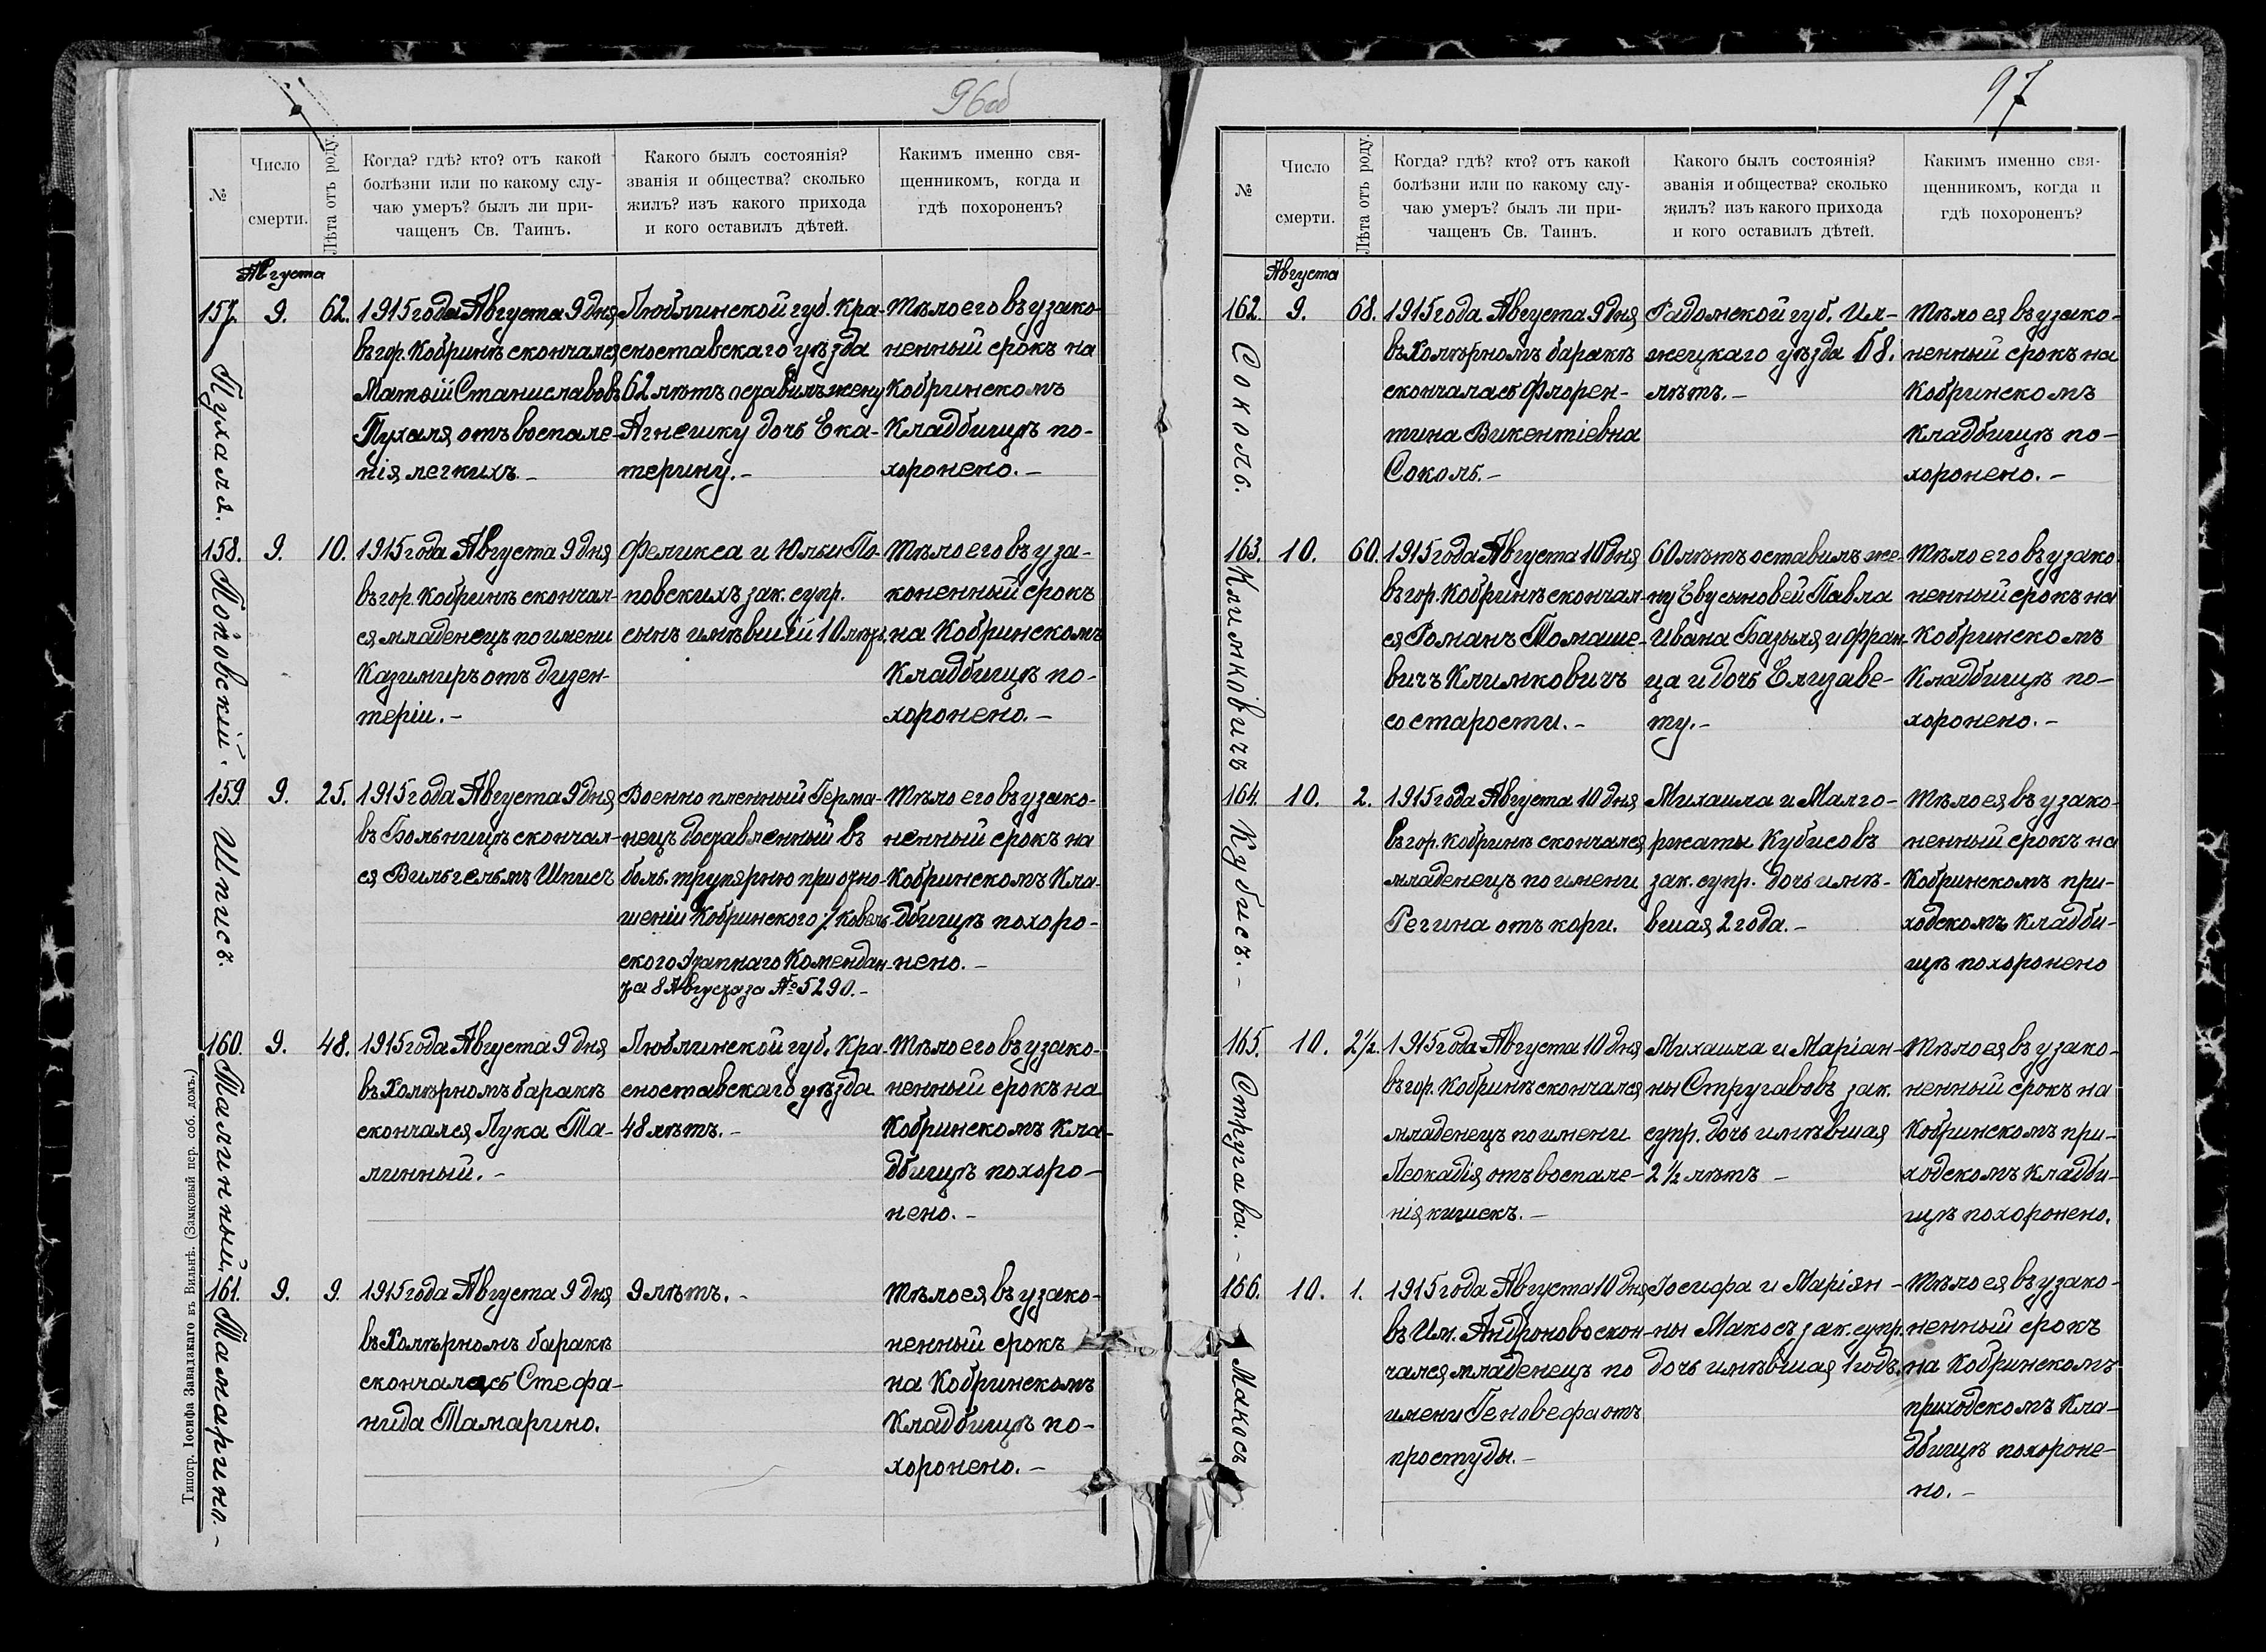 96об
№
Число
смерти.
Лѣта отъ роду.
Когда? гдѣ? кто? отъ какой
болѣзни или по какому слу-
чаю умеръ? былъ ли при-
чащенъ Св. Таинъ.
Какого былъ состоянія?
званія и общества? сколько
жилъ? изъ какого прихода
и кого оставилъ дѣтей.
Какимъ именно свя-
щенникомъ, когда и
гдѣ похороненъ?
Августа
157.
Пухаля.
9.
62.
1915 года Августа 9 дня
въ гор. Кобринѣ скончался
Матѳій Станиславовъ
Пухаля отъ воспале-
нія легкихъ. –
Люблинской губ. Кра-
сноставскаго уѣзда
62 лѣтъ оставилъ жену
Агнешку дочь Ека-
терину. –
Тѣло его въ узако-
ненный срокъ на
Кобринскомъ
Кладбищѣ по-
хоронено. –
158.
Поповскій.
9.
10.
1915 года Августа 9 дня
въ гор. Кобринѣ скончал-
ся младенецъ по имени
Казимиръ отъ дизен-
теріи. –
Феликса и Юліи По-
повскихъ зак. супр.
сынъ имѣвшій 10 лѣтъ.
Тѣло его въ уза-
коненный срокъ
на Кобринскомъ
Кладбищѣ по-
хоронено. –
159
Шписъ.
9.
25.
1915 года Августа 9 дня
въ Больницѣ скончал-
ся Вильгельмъ Шписъ
Военно пленный Герма-
нецъ доставленный въ
боль. трупярню при отно-
шеніи Кобринского /. ковель-
ского Этапнаго Комендан-
та 8 Августа за № 5290. –
Тѣло его въ узако-
ненный срокъ на
Кобринскомъ Кла-
дбищѣ похоро-
нено. –
160.
Талинный.
9.
48.
1915 года Августа 9 дня
въ Холѣрномъ баракѣ
скончался Лука Та-
линный. –
Люблинской губ. Кра-
сноставскаго уѣзда
48 лѣтъ. –
Тѣло его въ узако-
ненный срокъ на
Кобринскомъ Кла-
дбищѣ похоро-
нено. –
161.
Тамарино. –
9.
9.
1915 года Августа 9 дня
въ Холѣрномъ баракѣ
скончалась Стефа-
нида Тамарино.
9 лѣтъ. –
Тѣло ея въ узако-
ненный срокъ
на Кобринскомъ
Кладбищѣ по-
хоронено. –
Типогр. Іосифа Завадзкаго въ Вильнѣ. (Замковый пер. соб. домъ.)
97
№
Число
смерти.
Лѣта отъ роду.
Когда? гдѣ? кто? отъ какой
болѣзни или по какому слу-
чаю умеръ? былъ ли при-
чащенъ Св. Таинъ.
Какого былъ состоянія?
званія и общества? сколько
жилъ? изъ какого прихода
и кого оставилъ дѣтей.
Какимъ именно свя-
щенникомъ, когда и
гдѣ похороненъ?
Августа
162.
Соколь.
9.
68.
1915 года Августа 9 дня
въ Холѣрномъ баракѣ
скончалась Флорен-
тина Викентіевна
Соколь. –
Радомской губ. Ил-
жецкаго уѣзда 68.
лѣтъ. –
Тѣло ея въ узако-
ненный срокъ на
Кобринскомъ
Кладбищѣ по-
хоронено. –
163.
Климковичъ
10.
60.
1915 года Августа 10 дня
въ гор. Кобринѣ скончал-
ся Романъ Томаше-
вичъ Климковичъ
со старости. –
60 лѣтъ оставилъ же-
ну Еву сыновей Павла
Ивана Базыля и Фран-
ца и дочь Елизаве-
ту. –
Тѣло его въ узако-
ненный срокъ на
Кобринскомъ
Кладбищѣ по-
хоронено. –
164.
Кубисъ. –
10.
2.
1915 года Августа 10 дня
въ гор. Кобринѣ скончался
младенецъ по имени
Регина отъ кори.
Михаила и Малго-
ржаты Кубисовъ
зак. супр. дочь имѣ-
вшая 2 года. –
Тѣло ея въ узако-
ненный срокъ на
Кобринскомъ при-
ходскомъ Кладби-
щѣ похоронено
165.
Стругава. –
10.
2½.
1915 года Августа 10 дня
въ гор. Кобринѣ скончался
младенецъ по имени
Леокадія отъ воспале-
нія кишекъ. –
Михаила и Маріан-
ны Стругавовъ зак.
супр. дочь имѣвшая
2½ лѣтъ –
Тѣло ея въ узако-
ненный срокъ на
Кобринскомъ при-
ходскомъ Кладби-
щѣ похоронено.
166.
Макосъ
10.
1.
1915 года Августа 10 дня
въ Им. Андроново скон-
чался младенецъ по
имени Геновефа отъ
простуды. –
Іосифа и Маріян-
ны Макосъ зак. супр.
дочь имѣвшая 1 годъ.
Тѣло ея въ узако-
ненный срокъ
на Кобринскомъ
приходскомъ Кла-
дбищѣ похороне-
но. –